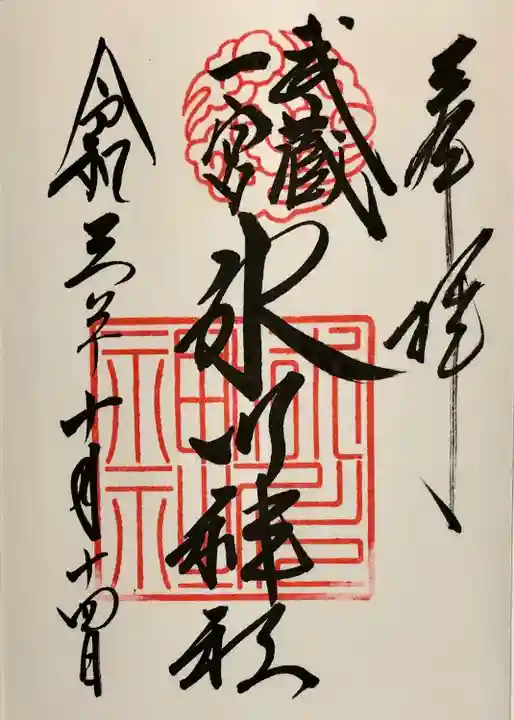 奉拝
武蔵
一宮
氷川神社
令和三年十月十四日
氷川神社